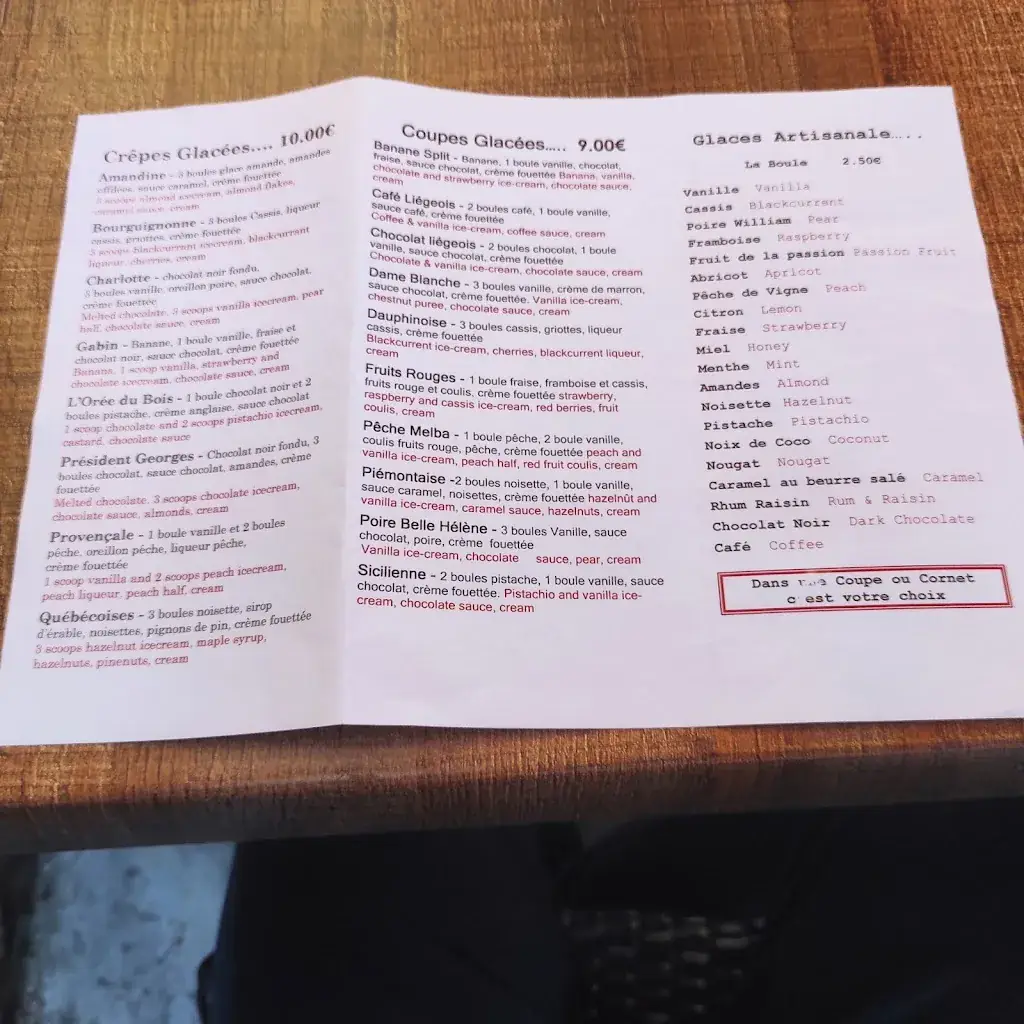 Crêpes Glacées.... 10.00€
Amandine - 3 boules glace amande, amandes
effilées, sauce caramel, crème fouettée
3 scoops almond icecream, almond flakes,
caramel sauce, cream
Bourguignonne - 3 boules Cassis, liqueur
cassis, griottes, crème fouettée
3 scoops blackcurrant icecream, blackcurrant
liqueur, cherries, cream
Charlotte - chocolat noir fondu,
3 boules vanille, oreillon poire, sauce chocolat,
crème fouettée
Melted chocolate, 3 scoops vanilla icecream, pear
half, chocolate sauce, cream
Gabin - Banane, 1 boule vanille, fraise et
chocolat noir, sauce chocolat, crème fouettée
Banana, 1 scoop vanilla, strawberry and
chocolate icecream, chocolate sauce, cream
L'Orée du Bois - 1 boule chocolat noir et 2
boules pistache, crème anglaise, sauce chocolat
1 scoop chocolate and 2 scoops pistachio icecream,
custard, chocolate sauce
Président Georges - Chocolat noir fondu, 3
boules chocolat, sauce chocolat, amandes, crème
fouettée
Melted chocolate, 3 scoops chocolate icecream,
chocolate sauce, almonds, cream
Provençale - 1 boule vanille et 2 boules
pêche, oreillon pêche, liqueur pêche,
crème fouettée
1 scoop vanilla and 2 scoops peach icecream,
peach liqueur, peach half, cream
Québécoises - 3 boules noisette, sirop
d'érable, noisettes, pignons de pin, crème fouettée
3 scoops hazelnut icecream, maple syrup,
hazelnuts, pinenuts, cream
Coupes Glacées..... 9.00€
Banane Split - Banane, 1 boule vanille, chocolat,
fraise, sauce chocolat, crème fouettée Banana, vanilla,
chocolate and strawberry ice-cream, chocolate sauce,
cream
Café Liégeois - 2 boules café, 1 boule vanille,
sauce café, crème fouettée
Coffee & vanilla ice-cream, coffee sauce, cream
Chocolat liégeois - 2 boules chocolat, 1 boule
vanille, sauce chocolat, crème fouettée
Chocolate & vanilla ice-cream, chocolate sauce, cream
Dame Blanche - 3 boules vanille, crème de marron,
sauce chocolat, crème fouettée. Vanilla ice-cream,
chestnut puree, chocolate sauce, cream
Dauphinoise - 3 boules cassis, griottes, liqueur
cassis, crème fouettée
Blackcurrent ice-cream, cherries, blackcurrent liqueur,
cream
Fruits Rouges - 1 boule fraise, framboise et cassis,
fruits rouge et coulis, crème fouettée strawberry,
raspberry and cassis ice-cream, red berries, fruit
coulis, cream
Pêche Melba - 1 boule pêche, 2 boule vanille,
coulis fruits rouge, pêche, crème fouettée peach and
vanilla ice-cream, peach half, red fruit coulis, cream
Piémontaise -2 boules noisette, 1 boule vanille,
sauce caramel, noisettes, crème fouettée hazelnût and
vanilla ice-cream, caramel sauce, hazelnuts, cream
Poire Belle Hélène - 3 boules Vanille, sauce
chocolat, poire, crème fouettée
Vanilla ice-cream, chocolate sauce, pear, cream
Sicilienne - 2 boules pistache, 1 boule vanille, sauce
chocolat, crème fouettée. Pistachio and vanilla ice-
cream, chocolate sauce, cream
Glaces Artisanale.....
La Boule 2.50€
Vanille Vanilla
Cassis Blackcurrent
Poire William Pear
Framboise Raspberry
Fruit de la passion Passion Fruit
Abricot Apricot
Pêche de Vigne Peach
Citron Lemon
Fraise Strawberry
Miel Honey
Menthe Mint
Amandes Almond
Noisette Hazelnut
Pistache Pistachio
Noix de Coco Coconut
Nougat Nougat
Caramel au beurre salé Caramel
Rhum Raisin Rum & Raisin
Chocolat Noir Dark Chocolate
Café Coffee
Dans Coupe ou Cornet
c'est votre choix